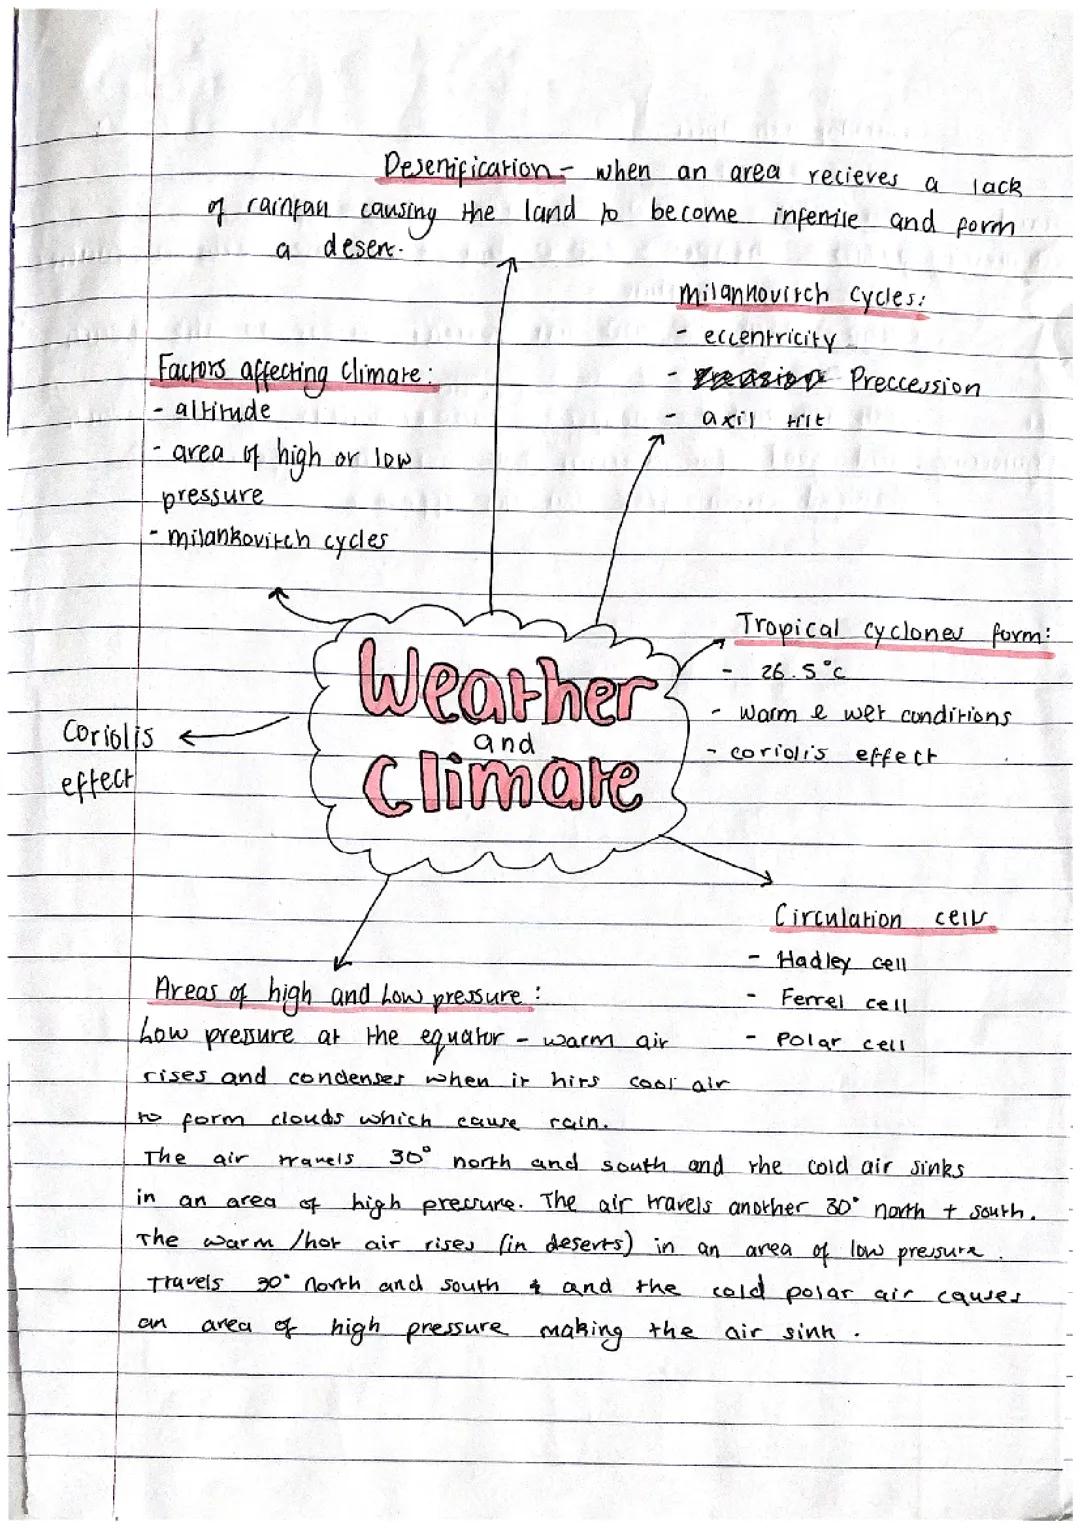 Desertification - when an area recieves a lack
of rainfall causing the land to become infertile and form
a desert.
Milannovitch Cycles:
- eccentricity
- Preccession
- axil tilt
Factors affecting Climate:
- altitude
- area of high or low
pressure
- milankovitch cycles
Tropical cyclones form:
- 26.5°c
- warm & wet conditions
- coriolis effect
Weather
and
Climate
Coriolis
effect
Circulation cells
- Hadley cell
- Ferrel cell
- Polar cell
Areas of high and Low pressure:
Low pressure at the equator - warm air
rises and condenses when it hits cool air
to form clouds which cause rain.
The air travels 30° north and south and the cold air sinks
in an area of high pressure. The air travels another 30° north + south.
The warm/hot air rises (in deserts) in an area of low pressure.
Travels 30° north and south & and the cold polar air causes
an area of high pressure making the air sink.